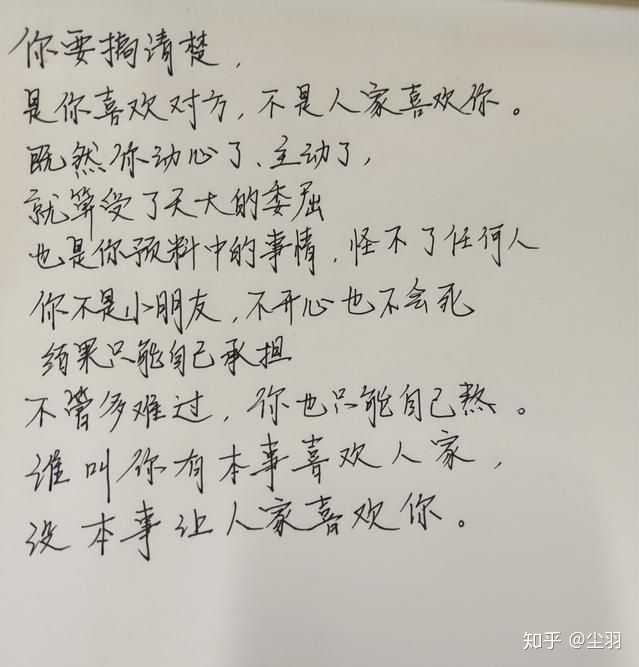 你要搞清楚，
是你喜欢对方，不是人家喜欢你。
既然你动心了、主动了，
就算受了天大的委屈
也是你预料中的事情，怪不了任何人
你不是小朋友，不开心也不会死
结果只能自己承担
不管多难过，你也只能自己熬。
谁叫你有本事喜欢人家，
没本事让人家喜欢你。
知乎 @尘羽